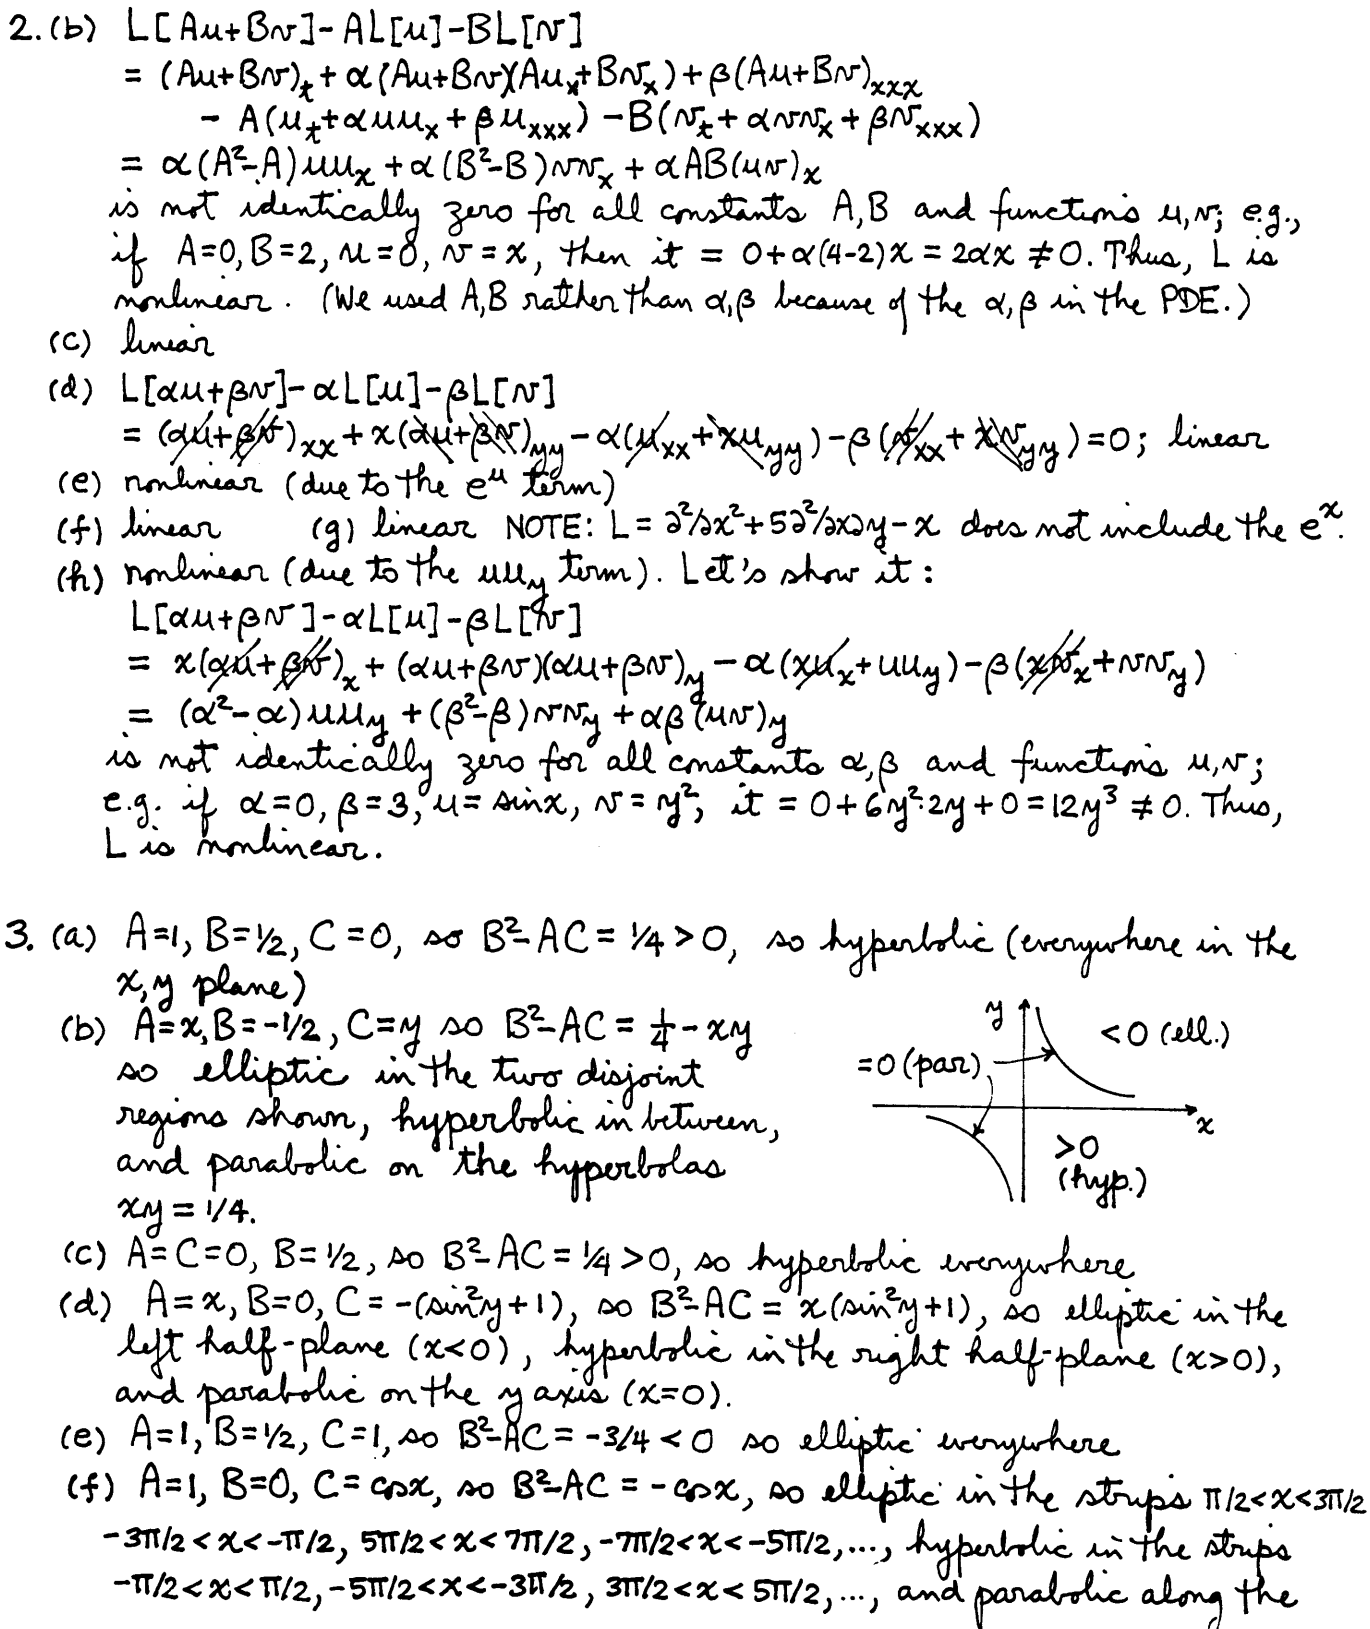 2. (b) L[Au+Bv]-AL[u]-BL[v]
= (Au+Bv)_t + α(Au+Bv)(Au_x+Bv_x) + β(Au+Bv)_xxx
- A(u_t+αuu_x+βu_xxx) - B(v_t+αvv_x+βv_xxx)
= α(A²-A)uu_x + α(B²-B)vv_x + αAB(uv)_x
is not identically zero for all constants A,B and functions u,v; e.g.,
if A=0, B=2, u=0, v=x, then it = 0+α(4-2)x = 2αx ≠ 0. Thus, L is
nonlinear. (We used A,B rather than α,β because of the α,β in the PDE.)
(c) linear
(d) L[αu+βv]-αL[u]-βL[v]
= (αu+βv)_xx + x(αu+βv)_yy - α(u_xx+xu_yy) - β(v_xx+xv_yy) = 0; linear
(e) nonlinear (due to the e^u term)
(f) linear (g) linear NOTE: L = ∂²/∂x²+5∂²/∂x∂y-x does not include the e^x.
(h) nonlinear (due to the uu_y term). Let's show it:
L[αu+βv]-αL[u]-βL[v]
= x(αu+βv)_x + (αu+βv)(αu+βv)_y - α(xu_x+uu_y) - β(xv_x+vv_y)
= (α²-α)uu_y + (β²-β)vv_y + αβ(uv)_y
is not identically zero for all constants α,β and functions u,v;
e.g. if α=0, β=3, u=sinx, v=y², it = 0+6y²·2y+0 = 12y³ ≠ 0. Thus,
L is nonlinear.
3. (a) A=1, B=1/2, C=0, so B²-AC = 1/4 > 0, so hyperbolic (everywhere in the
x,y plane)
(b) A=x, B=-1/2, C=y so B²-AC = 1/4 - xy
so elliptic in the two disjoint
regions shown, hyperbolic in between,
and parabolic on the hyperbolas
xy = 1/4.
y
<0 (ell.)
=0 (par)
x
>0
(hyp.)
(c) A=C=0, B=1/2, so B²-AC = 1/4 > 0, so hyperbolic everywhere
(d) A=x, B=0, C=-(sin²y+1), so B²-AC = x(sin²y+1), so elliptic in the
left half-plane (x<0), hyperbolic in the right half-plane (x>0),
and parabolic on the y axis (x=0).
(e) A=1, B=1/2, C=1, so B²-AC = -3/4 < 0 so elliptic everywhere
(f) A=1, B=0, C=cosx, so B²-AC = -cosx, so elliptic in the strips π/2<x<3π/2
-3π/2<x<-π/2, 5π/2<x<7π/2, -7π/2<x<-5π/2, ..., hyperbolic in the strips
-π/2<x<π/2, -5π/2<x<-3π/2, 3π/2<x<5π/2, ..., and parabolic along the